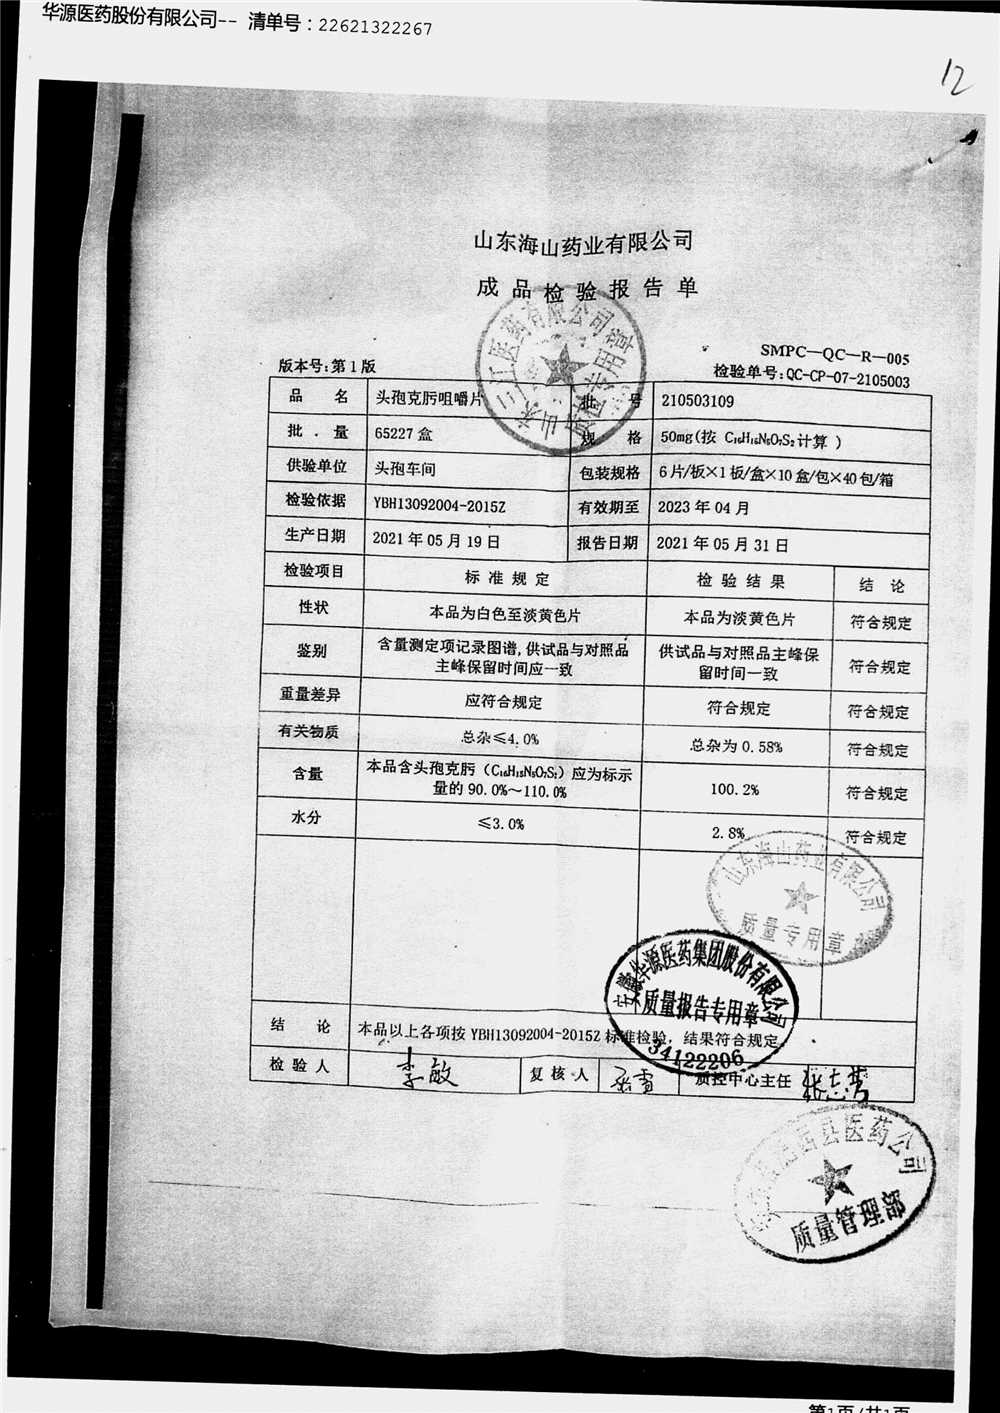 华源医药股份有限公司-- 清单号：22621322267
12
山东海山药业有限公司
成品检验报告单
SMPC—QC—R—005
版本号:第1版
检验单号:QC-CP-07-2105003
品 名 头孢克肟咀嚼片 批 号 210503109
批 . 量 65227盒 规 格 50mg(按 C₁₆H₁₅N₅O₇S₂计算 )
供验单位 头孢车间 包装规格 6片/板×1板/盒×10盒/包×40包/箱
检验依据 YBH13092004-2015Z 有效期至 2023年04月
生产日期 2021年05月19日 报告日期 2021年05月31日
检验项目 标准规定 检验结果 结 论
性状 本品为白色至淡黄色片 本品为淡黄色片 符合规定
鉴别 含量测定项记录图谱,供试品与对照品
主峰保留时间应一致 供试品与对照品主峰保
留时间一致 符合规定
重量差异 应符合规定 符合规定 符合规定
有关物质 总杂≤4.0% 总杂为0.58% 符合规定
含量 本品含头孢克肟（C₁₆H₁₅N₅O₇S₂）应为标示
量的90.0%～110.0% 100.2% 符合规定
水分 ≤3.0% 2.8% 符合规定
山东海山药业有限公司
质量专用章
安徽华源医药集团股份有限公司
质量报告专用章
34122206
结 论 本品以上各项按YBH13092004-2015Z标准检验，结果符合规定
检验人 李敏 复核人 质控中心主任
县医药公司
质量管理部
第1页/共1页